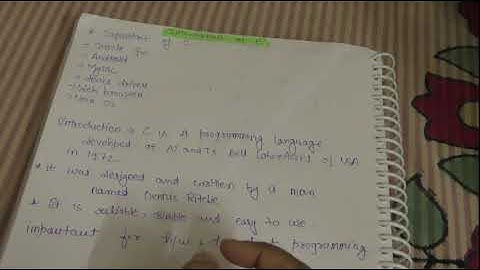 Introduction of C
* Important of C
→ Oracle
→ Android
→ MySQL
→ device driver
→ Web browser
→ Unix OS
Introduction → C is A programming language
developed at AT and T's Bell of USA
in 1972.
* It was designed and written by a man
named Dennis Ritchie
* It is reliable, simple and easy to use
important for h/w programming